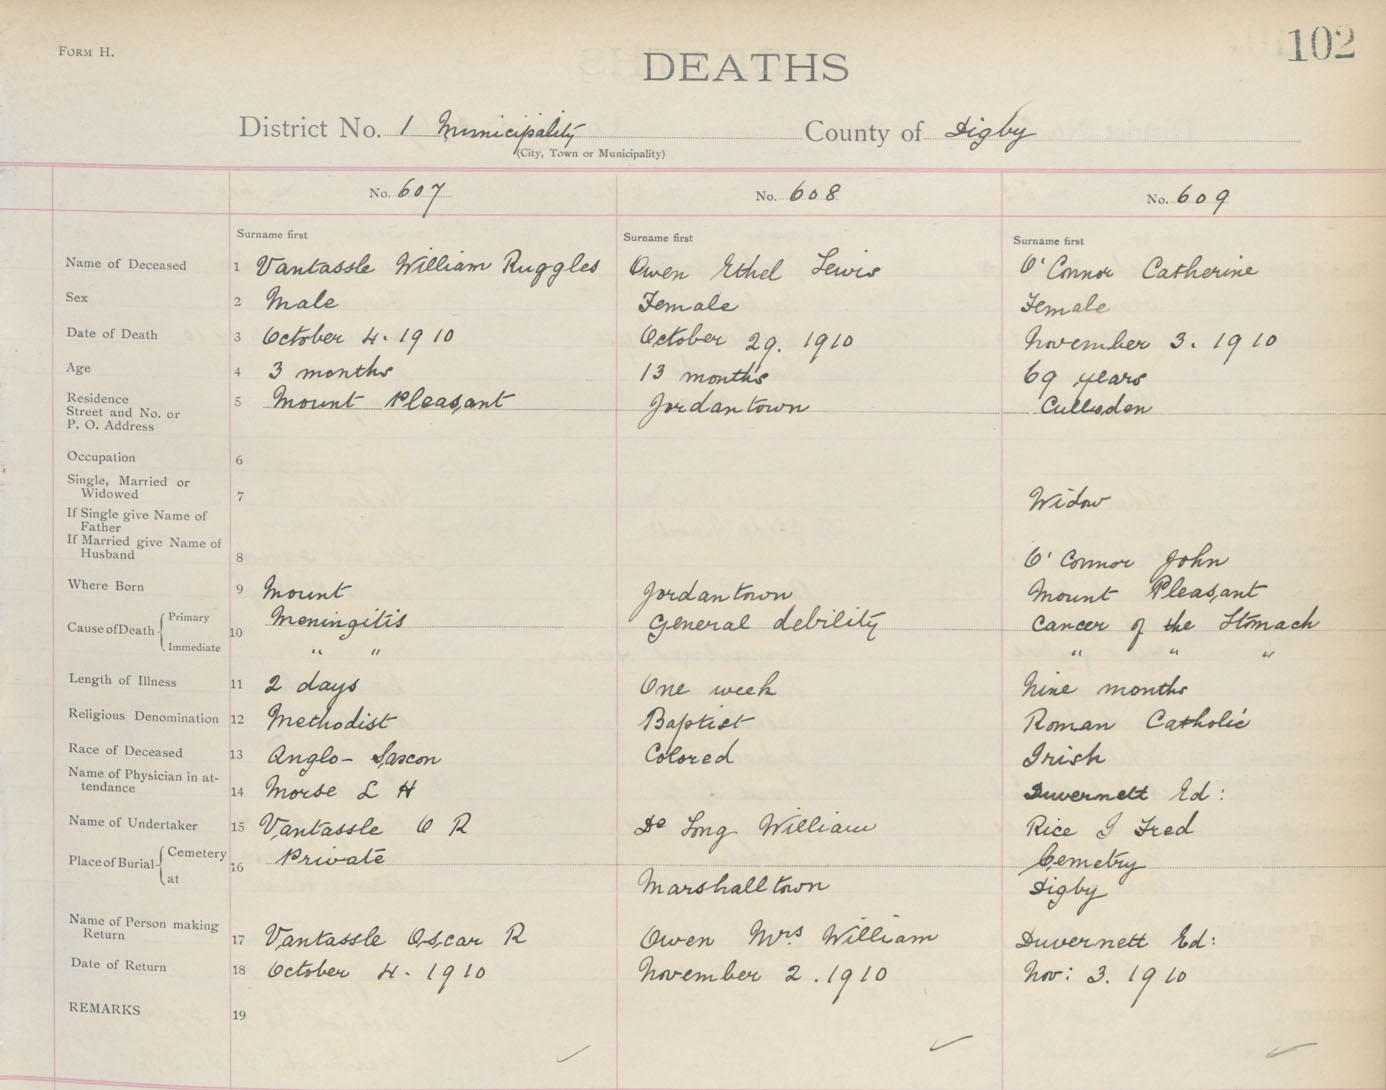 Form H.
102
DEATHS
District No. 1 Municipality County of Digby
(City, Town or Municipality)
No. 607 No. 608 No. 609
Surname first Surname first Surname first
Name of Deceased 1 Vantassle William Ruggles Owen Ethel Lewis O'Connor Catherine
Sex 2 Male Female Female
Date of Death 3 October 4. 1910 October 29. 1910 November 3. 1910
Age 4 3 months 13 months 69 years
Residence
Street and No. or 5 Mount Pleasant Jordantown Culloden
P. O. Address
Occupation 6
Single, Married or
Widowed 7 Widow
If Single give Name of
Father
If Married give Name of
Husband 8 O'Connor John
Where Born 9 Mount Jordantown Mount Pleasant
Cause of Death Primary 10 Meningitis General debility Cancer of the Stomach
Immediate " " " " "
Length of Illness 11 2 days One week Nine months
Religious Denomination 12 Methodist Baptist Roman Catholic
Race of Deceased 13 Anglo-Saxcon Colored Irish
Name of Physician in at-
tendance 14 Morse L H Duvernett Ed:
Name of Undertaker 15 Vantassle O R De Long William Rice J Fred
Place of Burial Cemetery 16 Private Cemetry
at Marshalltown Digby
Name of Person making
Return 17 Vantassle Oscar R Owen Mrs William Duvernett Ed:
Date of Return 18 October 4. 1910 November 2. 1910 Nov: 3. 1910
REMARKS 19